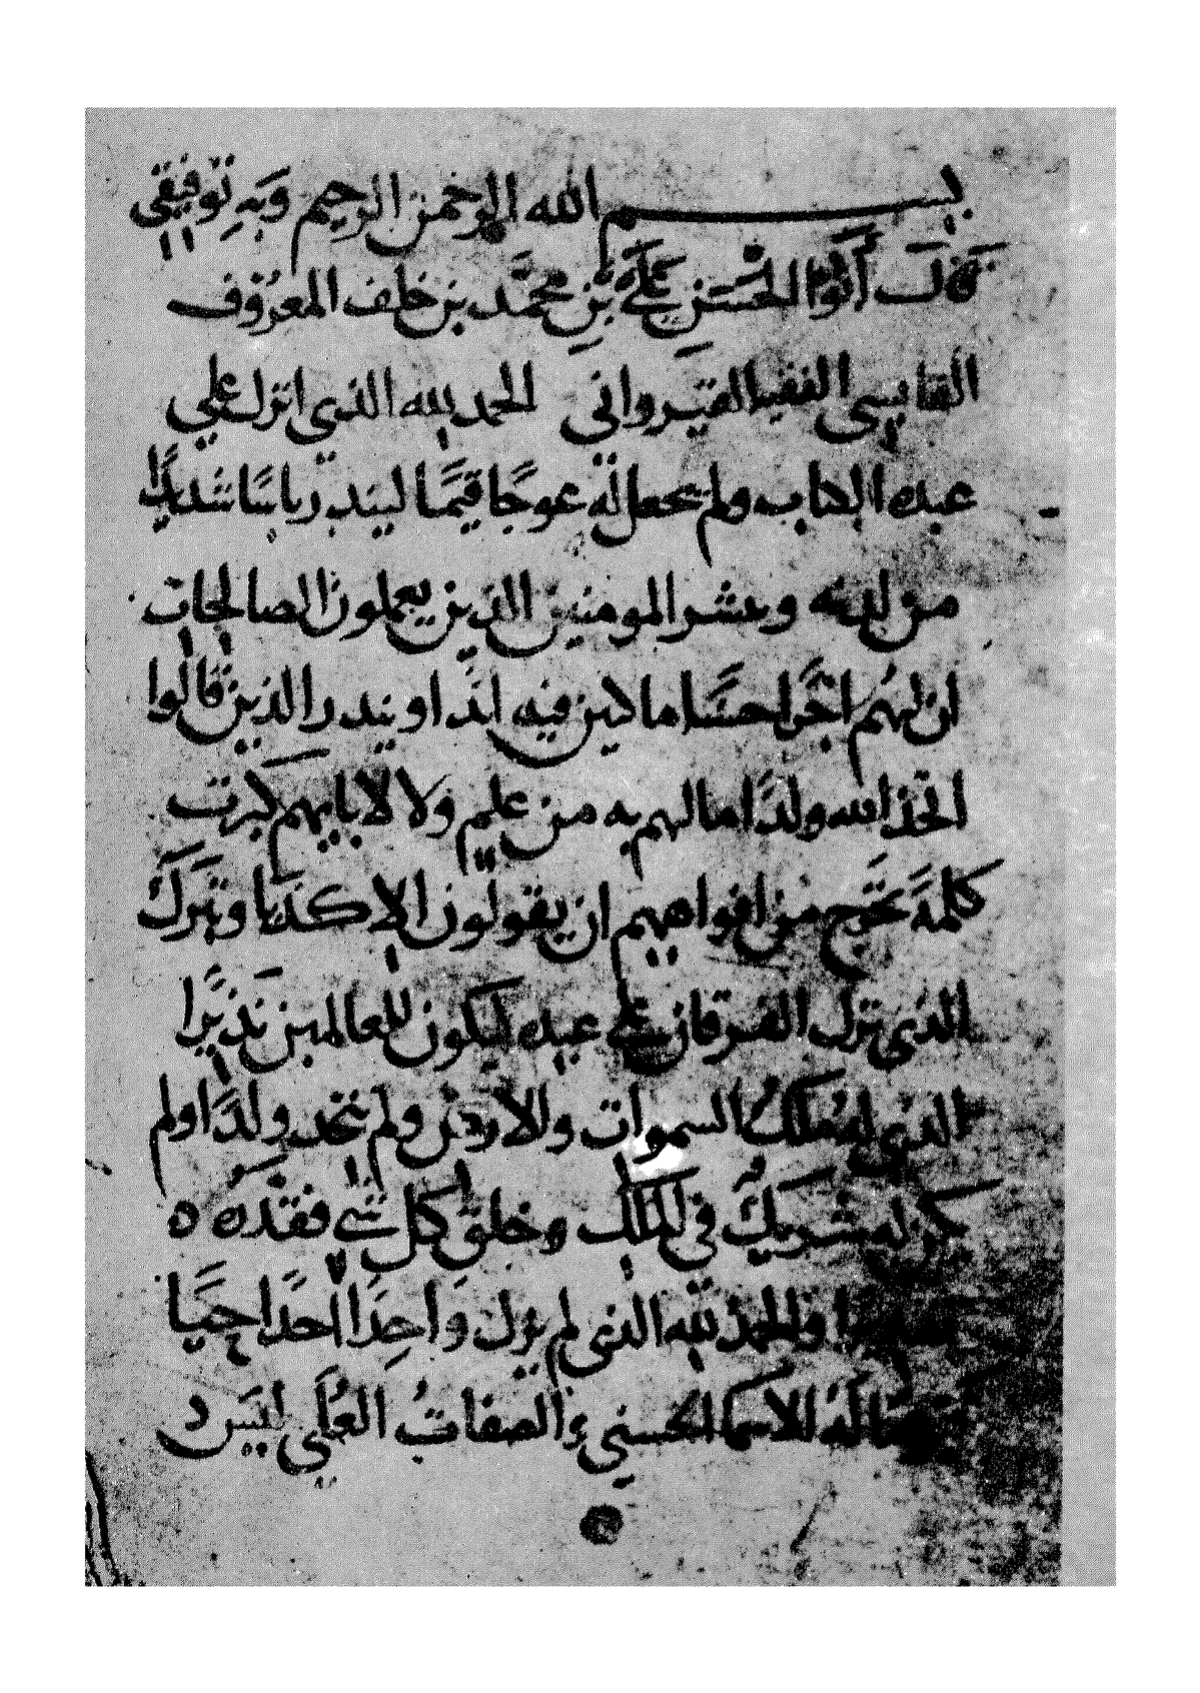 بسم الله الرحمن الرحيم وَبِهِ تَوفيقي
قال أَبُوا الحسَنِ عَلي بْنِ محمَّد بن خلف المعرُوف
القابسى الفقيه القيرواني الحمد لله الذي انزل على
عبده الكتاب ولم يجعل لَه عوجًا قيمًا لينذر باسًا شديدًا
من لدنه ويبشر المومنين الذين يعملون الصالحات
ان لهُم اجْرًا حسَنًا ماكثين فيه ابدًا وينذر الذين قالُوا
اتخذ الله ولدًا ما لهم به من علم ولا لابايهم كبرَت
كلمَةً تخرج من افواههم ان يقولون الا كذبا وتبرَكَ
الذي نزل الفرقان على عبده ليكون للعالمين نَذيرًا
الذي له ملكُ السموات والارض ولم يتخد ولدًا ولم
يكن له شريكٌ في الملك وخلقَ كل شيء فقدَّره ه
والحمد لله الذي لم يزل وَاحِدًا احدًا حيًا
لَهُ الاسما الحسنى والصفاتُ العُلَى ليسَ